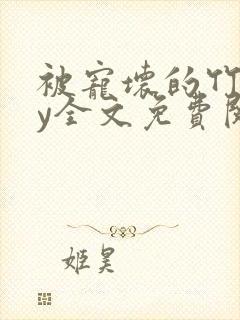 被寵壞的竹
y全文免費閱
姬昊